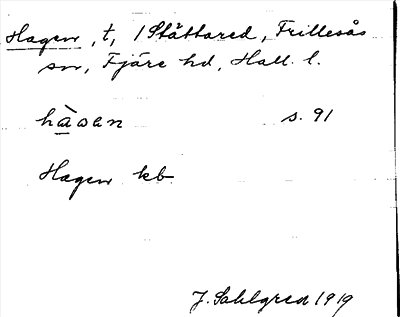 Hagen, t, 1 Stättared, Frillesås
sn, Fjäre hd, Hall. l.
hàɷen s. 91
Hagen kb
J. Sahlgren 1919